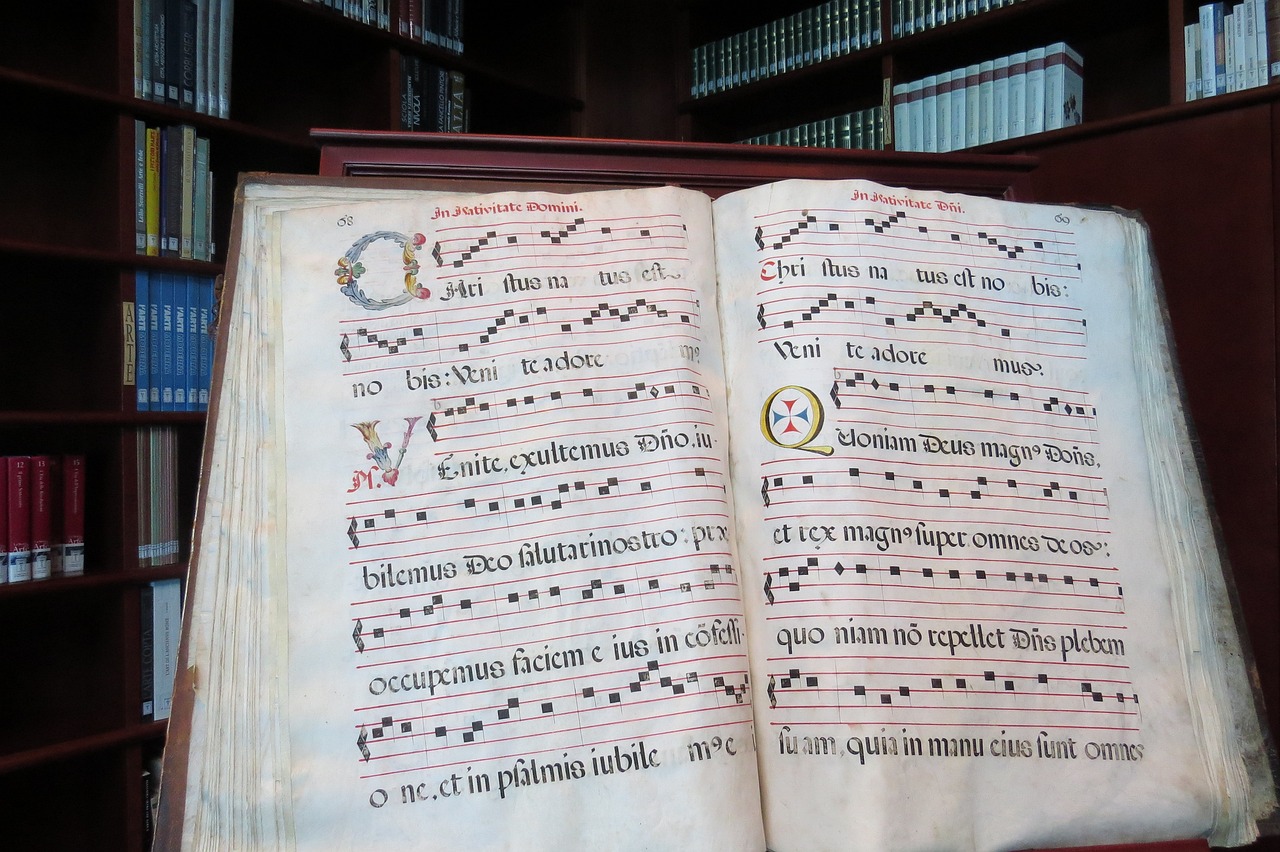 68
In Nativitate Domini.
CHri stus na tus est
no bis: Veni te adore m9
Ps. VEnite, exultemus Dño, iu-
bilemus Deo salutari nostro: præ
occupemus faciem e ius in cõfessi-
o ne, et in psalmis iubile m9 e
69
In Nativitate Dñi.
Chri stus na tus est no bis:
Veni te adore mus.
Quoniam Deus magn9 Dоñs,
et rex magn9 super omnes deos:
quo niam nõ repellet Dñs plebem
suam, quia in manu eius sunt omnes
ARTE
L'ARTE
L'ARTE
L'ARTE
L'ARTE
L'ARTE